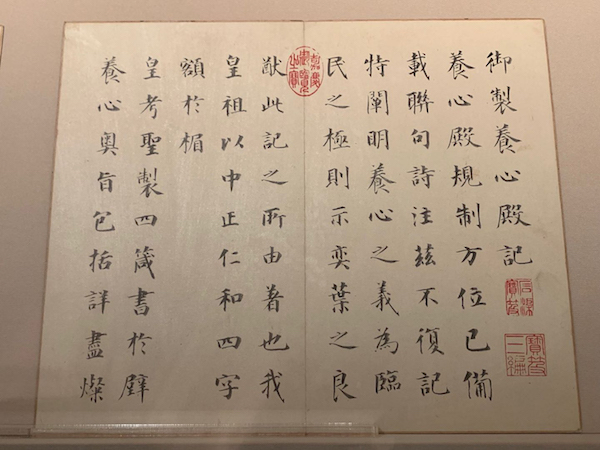 御製養心殿記
養心殿規制方位已備
載聯句詩注茲不復記
特闡明養心之義為臨
民之極則示奕葉之良
猷此記之所由著也我
皇祖以中正仁和四字
額於楣
皇考聖製四箴書於壁
養心奧旨包括詳盡燦
嘉慶御覽之寶
石渠寶笈
寶笈三編